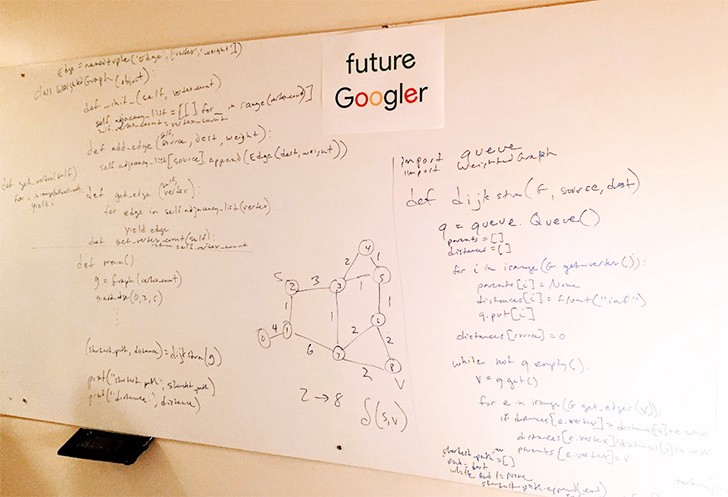 future
Googler
Edge = namedtuple('Edge', ['vertex', 'weight'])
class WeightedGraph(object):
def __init__(self, vertex_count)
self.adjacency_list = [[] for _ in range(vertex_count)]
self.vertex_count = vertex_count
def add_edge(self, source, dest, weight):
self.adjacency_list[source].append(Edge(dest, weight))
def get_vertex(self)
yield i
def get_edge(self, vertex):
for edge in self.adjacency_list(vertex)
yield edge
def get_vertex_count(self):
return self.vertex_count
def main()
g = Graph(vertex_count)
(shortest_path, distance) = dijkstra(g)
print("shortest path", shortest_path)
print("distance", distance)
4
2
1
S
2
3
3
1
5
1
1
1
0
4
1
6
7
2
2
2
8
V
2 → 8
δ(s,v)
import queue
import WeightedGraph
def dijkstra(G, source, dest)
q = queue.Queue()
parents = []
distances = []
for i in range(G.get_vertex()):
parents[i] = None
distances[i] = float("inf")
q.put[i]
distances[source] = 0
while not q.empty().
v = q.get()
for e in range(G.get_edges(v)):
if distances[e.vertex] > distance[v] +
distances[e.vertex]
parents[e.vertex] = v
shortest_path = []
end = dest
while end != None
shortest_path.append(end)